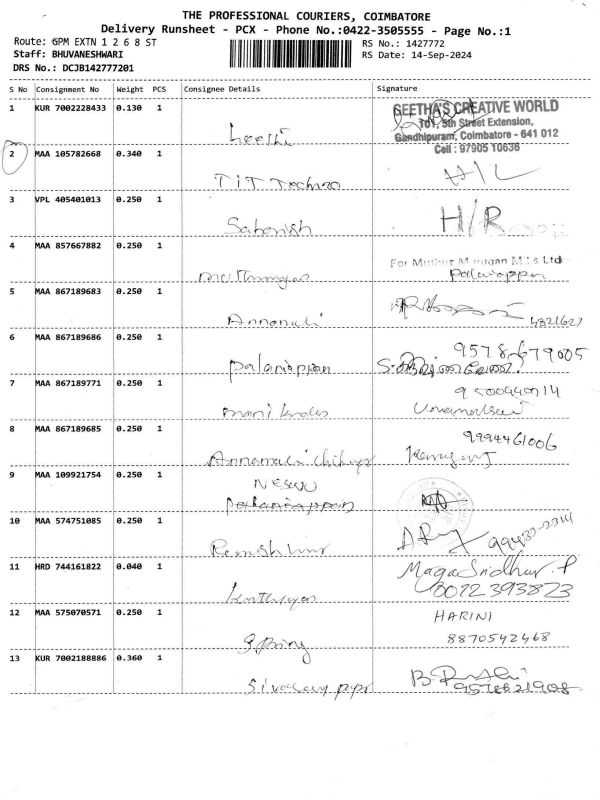 THE PROFESSIONAL COURIERS, COIMBATORE
Delivery Runsheet - PCX - Phone No.:0422-3505555 - Page No.:1
Route: GPM EXTN 1 2 6 8 ST
RS No.: 1427772
Staff: BHUVANESHWARI
RS Date: 14-Sep-2024
DRS No.: DCJB142777201
S No Consignment No Weight PCS Consignee Details Signature
1 KUR 7002228433 0.130 1
GEETHA'S CREATIVE WORLD
101, 5th Street Extension,
Gandhipuram, Coimbatore - 641 012
Cell : 97905 10636
2 MAA 105782668 0.340 1
TIT Techno H/L
3 VPL 405401013 0.250 1
Sathish H/R
4 MAA 857667882 0.250 1
For Muthur Murugan M 's Ltd
Palaniappan
5 MAA 867189683 0.250 1
Annamali
4321627
6 MAA 867189686 0.250 1
9578-679005
Palaniappan
7 MAA 867189771 0.250 1
Manikandan
8 MAA 867189685 0.250 1
9994461006
Annamali
9 MAA 109921754 0.250 1
10 MAA 574751085 0.250 1
99433-2314
11 HRD 744161822 0.040 1
Maga Sridhar. P
8072393873
12 MAA 575070571 0.250 1
HARINI
8870542468
13 KUR 7002188886 0.360 1
9578821908